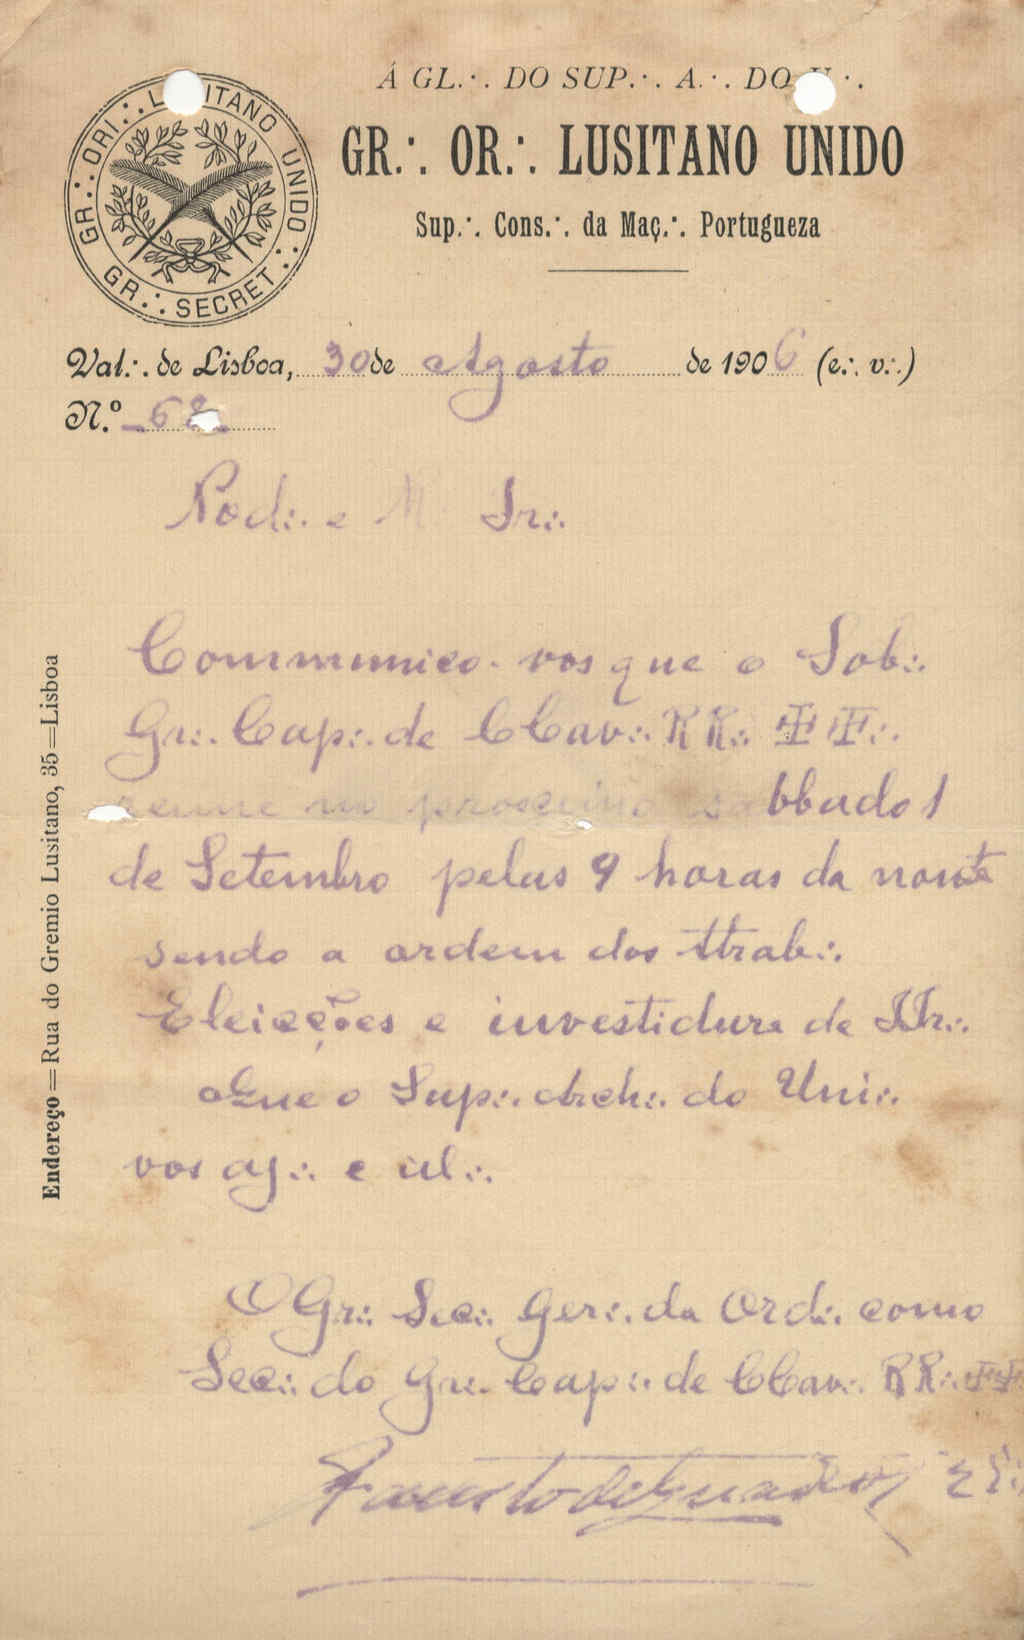 GR.∴ ORI.∴ LUSITANO UNIDO.∴
GR.∴ SECRET.∴
Á GL.∴ DO SUP.∴ A.∴ DO U.∴
GR.∴ OR.∴ LUSITANO UNIDO
Sup.∴ Cons.∴ da Maç.∴ Portugueza
Val.∴ de Lisboa, 30 de Agosto de 1906 (e.∴ v.∴)
N.º 62
Pod.∴ e M Ir.∴
Communico-vos que o Sob.∴
Gr.∴ Cap.∴ de CCav.∴ RR.∴ ☩☩.∴
reune no proximo sabbado 1
de Setembro pelas 9 horas da noute
sendo a ordem dos ttrab.∴
Eleicções e investidura de IIr.∴
Que o Sup.∴ Arch.∴ do Uni.∴
vos aj.∴ e il.∴
O Gr.∴ Sec.∴ Ger.∴ da Ord.∴ como
Sec.∴ do Gr.∴ Cap.∴ de CCav.∴ RR.∴ ☩☩
Fausto de Quadros
Endereço = Rua do Gremio Lusitano, 35 = Lisboa